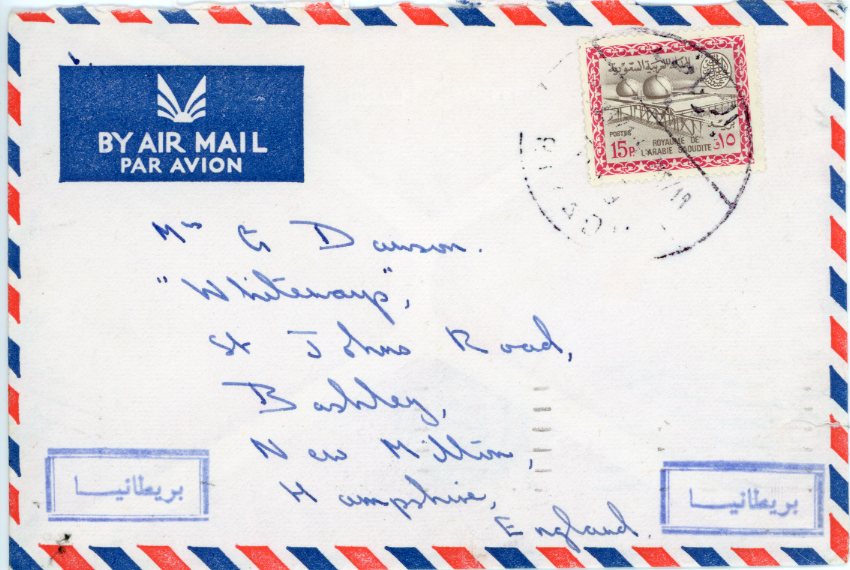 BY AIR MAIL
PAR AVION
المملكة العربية السعودية
POSTES
15P
ROYAUME DE
L'ARABIE SAOUDITE
١٥
Mrs G Dawson.
"Whiteways",
St Johns Road,
Bashley,
New Milton,
Hampshire,
England.
بريطانيا
بريطانيا